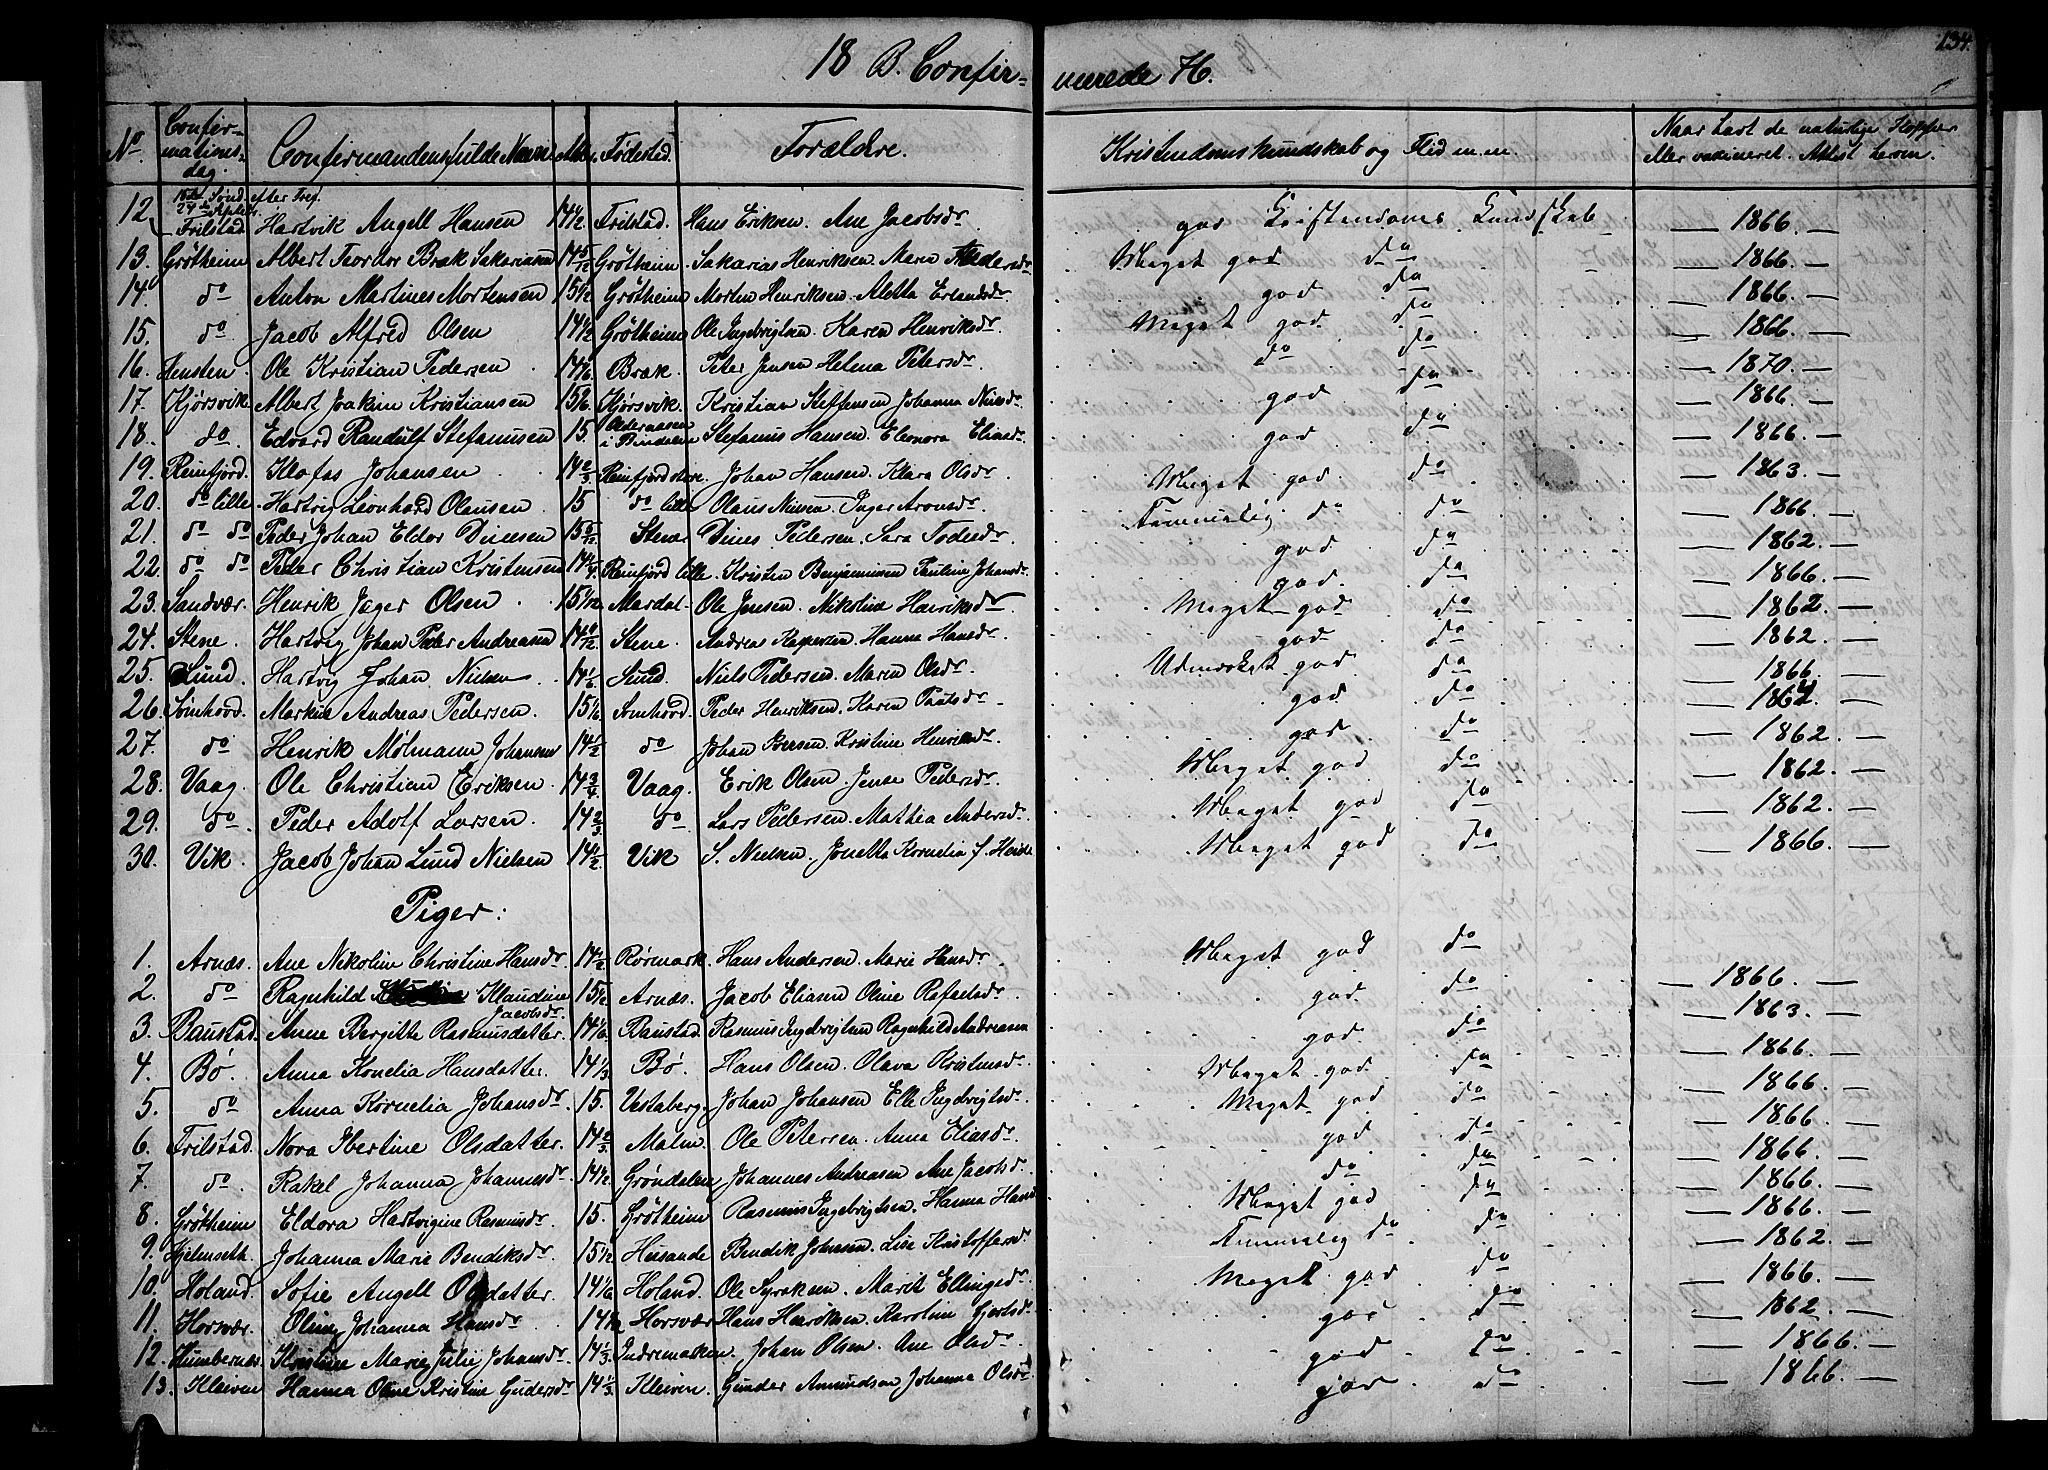 134.
18 B. Confir- merede H.
No. Confirmationsdag. Confirmandens fulde Navn Alder. Fødested. Forældre. Kristendomskundskab og Flid m.m. Naar havt de naturlige Kopper eller vaxineret. Attest herom.
15de Sønd. efter Tref. 24de Septbr.
12. Frilstad. Hartvik Angell Hansen 14 1/2 Frilstad. Hans Eriksen. Ane Jacobsdr. god Kristendoms Kundskab — 1866. —
13. Grøtheim Albert Teordor Bræk Sakariasen 14 5/12 Grøtheim. Sakarias Henriksen. Maren Andersdr. Meget god do — 1866. —
14. do Anton Martines Mortensen 15 1/2 Grøtheim Morten Henriksen. Aletta Erlandsdr. god do — 1866. —
15. do Jacob Alfred Olsen 14 1/2 Grøtheim Ole Ingebrigtsen. Karen Henriksdr. Meget god do — 1866. —
16. Hensten. Ole Kristian Pedersen 14 1/6 Bræk. Peter Jensen Helena Petersdr. do do — 1870. —
17. Kjørsvik. Albert Joakim Kristiansen 15 2/6 Kjørsvik. Kristian Steffensen Johanna Nilsdr. god do — 1866. —
18. do. Edvard Randulf Stefanusen 15. i Bindalen Stefanus Hansen. Eleonora Eliasdr. god do — 1866. —
19. Reinfjord. Klofas Johansen 14 2/3 Reinfjord store. Johan Hansen. Klara Olsdr. Meget god do — 1863. —
20. do lille. Hartvig Leonhard Olausen. 15 do lille Olaus Nilsen. Inger Aronsdr. Temmelig do do — 1866. —
21. do do Peder Johan Eldor Dinesen 15 5/12 Stene Dines Pedersen. Sara Todesdr. god do — 1862. —
22. do do Peder Christian Kristensen 14 3/4 Reinfjord lille. Kristen Benjaminsen Pauline Johansdr. god do — 1866. —
23. Sandvær. Henrik Jager Olsen 15 1/12 Mardal. Ole Jensen. Nikoline Henriksdr Meget god do — 1862. —
24. Stene. Hartvig Johan Peder Andreasen 14 Stene. Andrea Kaspersen. Hanna Hansdr. god do — 1862. —
25. Lund. Hartvig Johan Nielsen 14 1/6 Lund. Niels Pedersen. Maren Olsdr. Udmerket god do — 1866. —
26. Sømhord. Markus Andreas Pedersen. 15 1/6 Sømhord. Peder Henriksen. Karen Paalsdr. god do 1862. —
27. do Henrik Mølmann Johansen 14 1/2 do Johan Iversen. Kristine Henriksdr. god do — 1862. —
28. Vaag. Ole Christian Eriksen. 14 3/4 Vaag. Erik Olsen. Jense Pedersdr. Meget god do — 1862. —
29. do. Peder Adolf Larsen. 14 2/3 do Lars Pedersen. Mathea Andersdr. Meget god do — 1862. —
30. Vik Jacob Johan Lund Nielsen 14 1/2 Vik S. Nielsen. Jonetta Kornelia f. Heide Meget god do — 1866. —
Piger:
1. Arnæs. Ane Nikoline Christine Hansdr. 14 1/2 Rørmark. Hans Andersen. Marie Hansdr. Meget god do
2. do Ragnhild Klaudine Jacobsdr. 15 1/2 Arnæs. Jacob Eliasen Oline Rafaelsdr. god do — 1866. —
3. Baustad. Anne Bergitte Rasmusdatter. 14 1/6 Baustad. Rasmus Ingebrigtsen Ragnhild Andreasen god do — 1863. —
4. Bø. Anna Konelia Hansdatter. 14 1/3 Bø Hans Olsen. Olava Kristensdr. Meget god do — 1866. —
5. do Anna Kornelia Johansdr. 15. Vestaberg. Johan Johansen Elle Ingebrigtsdr. Meget god do — 1866. —
6. Frilstad. Nora Ibertine Olsdatter. 14 2/3 Malm. Ole Petersen. Anna Eliasdr. god do — 1866. —
7. do Rakel Johanna Johannesdr. 14 1/2 Grøndalen Johannes Andreasen Ane Jacobsdr. do do — 1866. —
8. Grøtheim Eldora Hartvigine Rasmusdr. 15. Grøtheim Rasmus Ingebrigtsen. Hanna Hansdr Meget god do — 1866. —
9. Hjelmseth. Johanna Marie Bendiksdr. 15 1/2 Husande Bendik Johnsen. Lise Kristoffersdr. Temmelig do do — 1866. —
10. Holand. Sofie Angell Olsdatter 14 1/6 Holand. Ole Syraksen. Marit Ellingsdr. Meget god do — 1862. —
11. Horsvær. Oline Johanna Hansdr 14 1/2 Horsvær Hans Henriksen. Karoline Gjertsdr. god do — 1866. —
12. Humbernæs. Kristine Marie Julie Johansdr. 14 1/3 Indremarken. Johan Olsen. Ane Olsdr god do — 1862. —
13. Kleiven Hanna Oline Kristine Gundersdr. 14 1/3 Kleiven. Gunder Amundsen Johanna Olsdr god do — 1866. —
— 1866. —